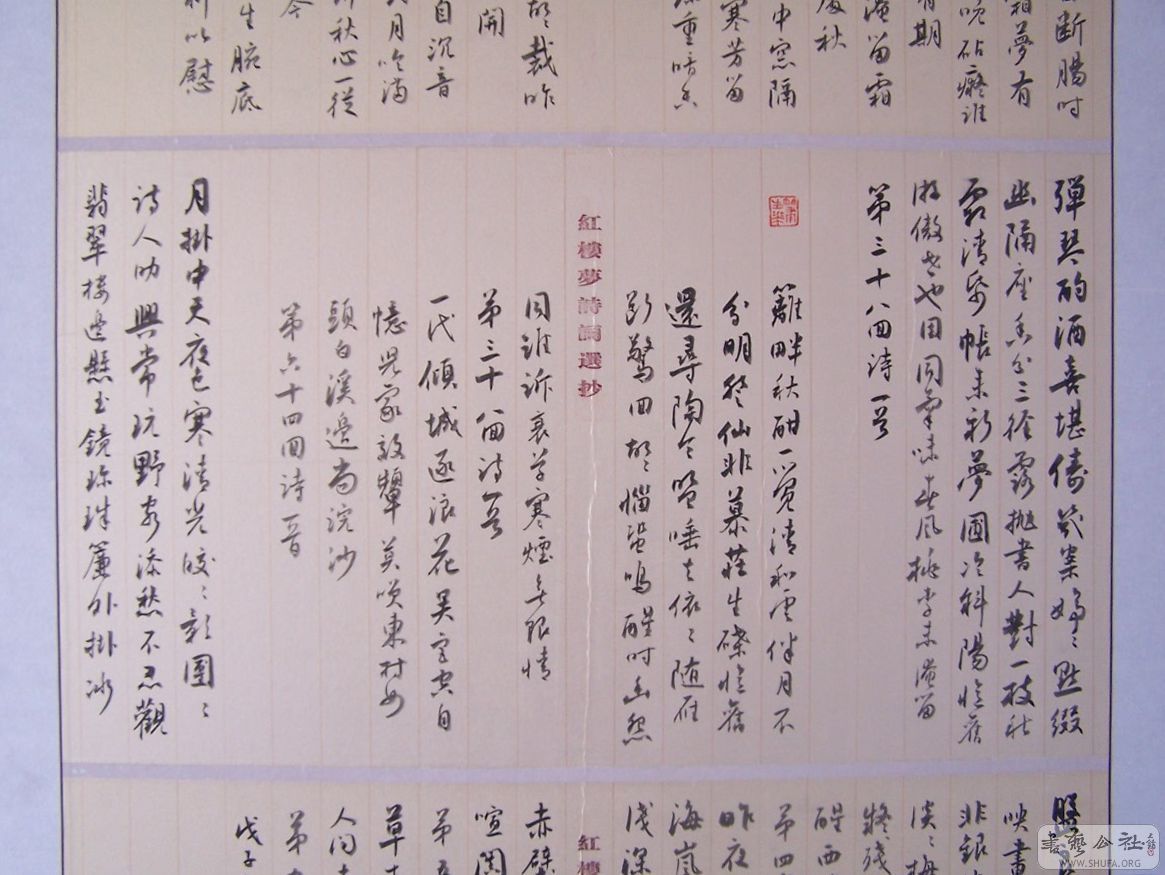 断腸時
霜夢有
晚砧癡誰
有期
淹留霜
度秋
中窓隔
寒芳留
重暗香
裁昨
開
自沉音
月吟滿
訴秋心一從
今
生腕底
以慰
彈琴酌酒喜堪儔几案婷〻點綴
幽隔座香分三徑露抛書人對一枝秋
霜清紙帳來新夢圃冷斜陽憶舊
游傲世也因同氣味春風桃李未淹留
第三十八回詩一首
籬畔秋酣一覺清和雲伴月不
分明登仙非慕莊生蝶憶舊
還尋陶令盟睡去依〻隨雁
斷驚回故〻惱蛩鳴醒時幽怨
紅樓夢詩詞選抄
同誰訴衰草寒煙無限情
第三十八回詩一首
一代傾城逐浪花吳宮空自
憶兒家效顰莫笑東村女
頭白溪邊尚浣沙
第六十四回詩一首
月掛中天夜色寒清光皎〻影團〻
詩人助興常玩野客添愁不忍觀
翡翠樓邊懸玉鏡珍珠簾外掛冰
映畫
非銀
淡〻梅
殘
醒西
第四
昨夜
海嵐
淺深
紅樓
赤壁
喧闐
第五
草
人間
第
戊子
書藝公社
WWW.SHUFA.ORG